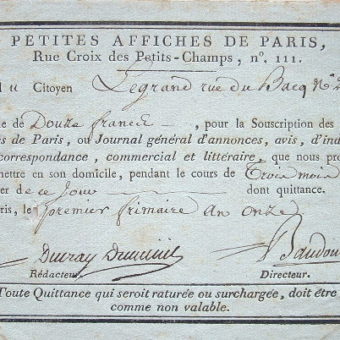 PETITES AFFICHES DE PARIS,
Rue Croix des Petits-Champs, nº. 111.
u Citoyen Legrand rue du Bacq Nº
e de Douze francs, pour la Souscription des
es de Paris, ou Journal général d'annonces, avis, d'ind
correspondance, commercial et littéraire, que nous pro
mettre en son domicile, pendant le cours de Trois mois
er de ce jour dont quittance.
ris, le premier frimaire an onze
Ducray Duminil Baudou
Rédacteur. Directeur.
Toute Quittance qui seroit raturée ou surchargée, doit être
comme non valable.